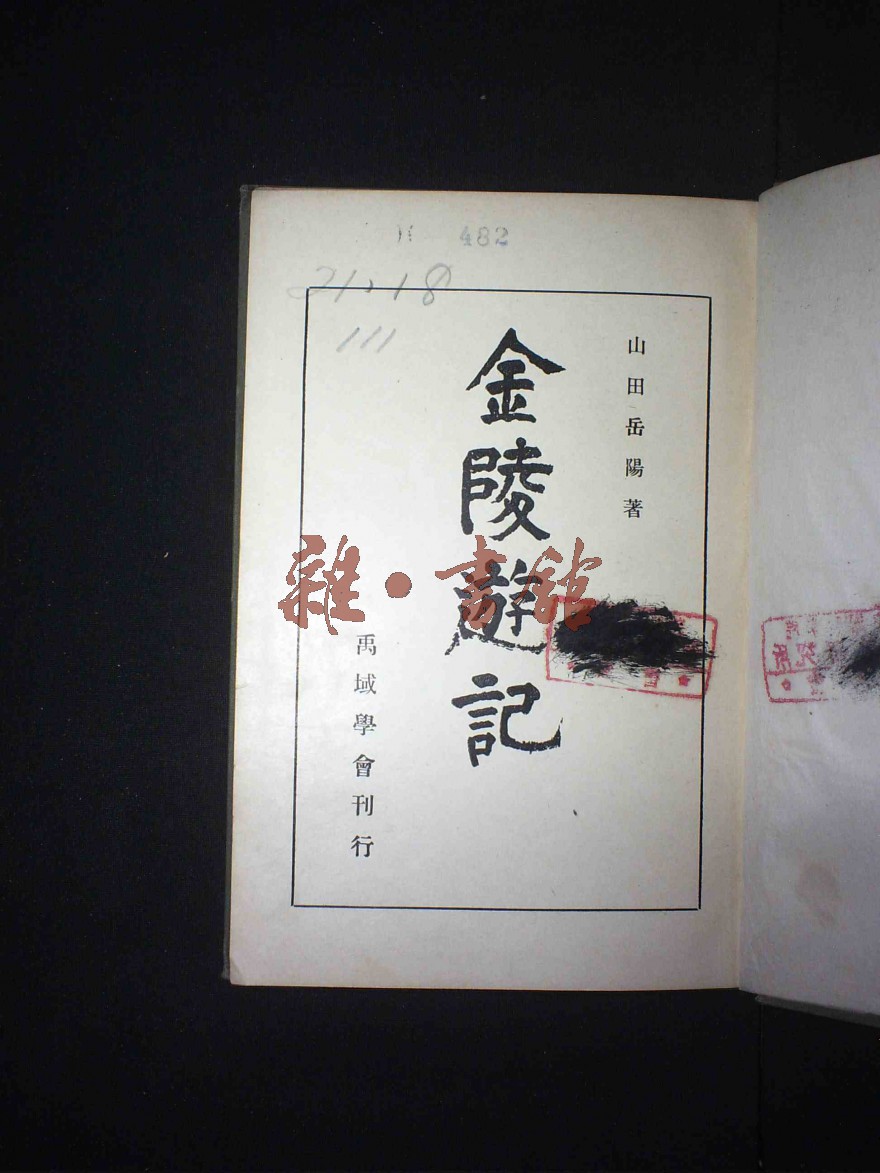 482
21.18
111
山田岳陽著
金陵遊記
禹域學會刊行
雜·書館